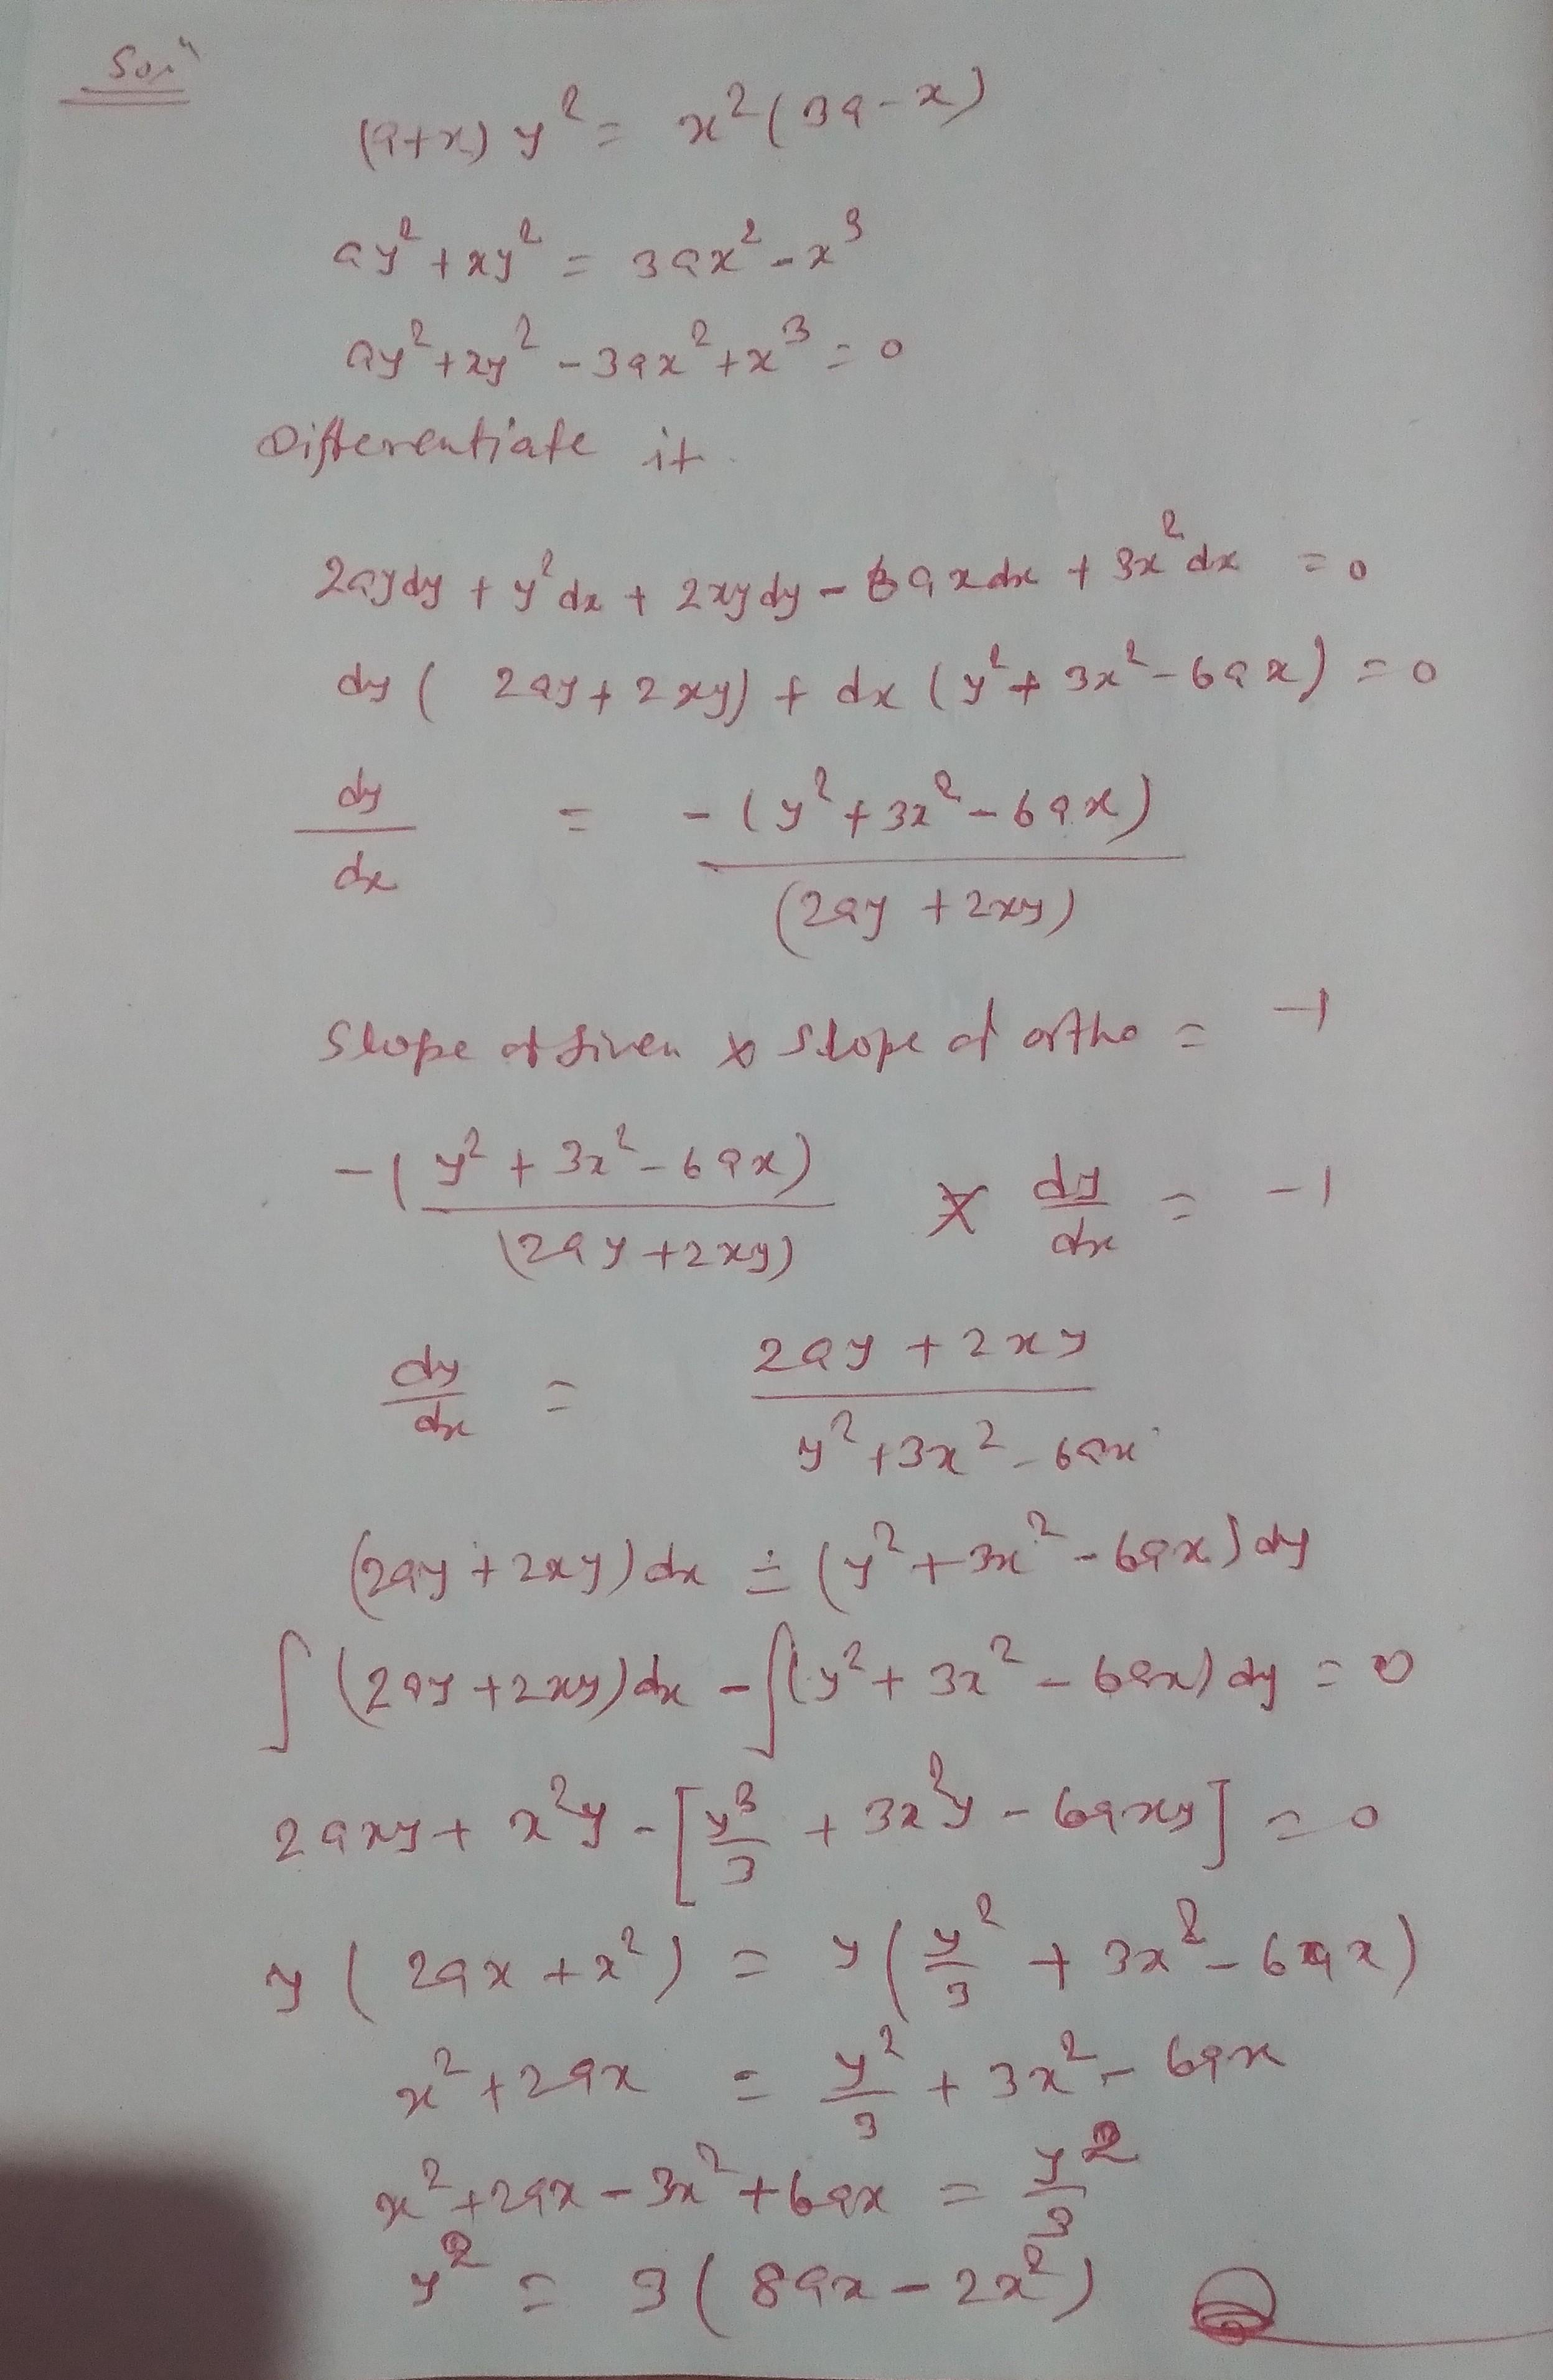 Sol"
(a+x) y² = x²(3a-x)
ay²+xy² = 3ax²-x³
ay²+xy²-3ax²+x³=0
Differentiate it.
2aydy + y²dx + 2xydy - 6axdx + 3x²dx = 0
dy ( 2ay+2xy) + dx (y²+3x²-6ax) = 0
dy/dx = -(y²+3x²-6ax)/(2ay+2xy)
Slope of given x slope of ortho = -1
-(y²+3x²-6ax)/(2ay+2xy) x dy/dx = -1
dy/dx = 2ay+2xy/y²+3x²-6ax
(2ay+2xy)dx = (y²+3x²-6ax)dy
∫(2ay+2xy)dx - ∫(y²+3x²-6ax)dy = 0
2axy+x²y-[y³/3+3x²y-6axy] = 0
y(2ax+x²) = y(y²/3+3x²-6ax)
x²+2ax = y²/3+3x²-6ax
x²+2ax-3x²+6ax = y²/3
y² = 3(8ax-2x²)